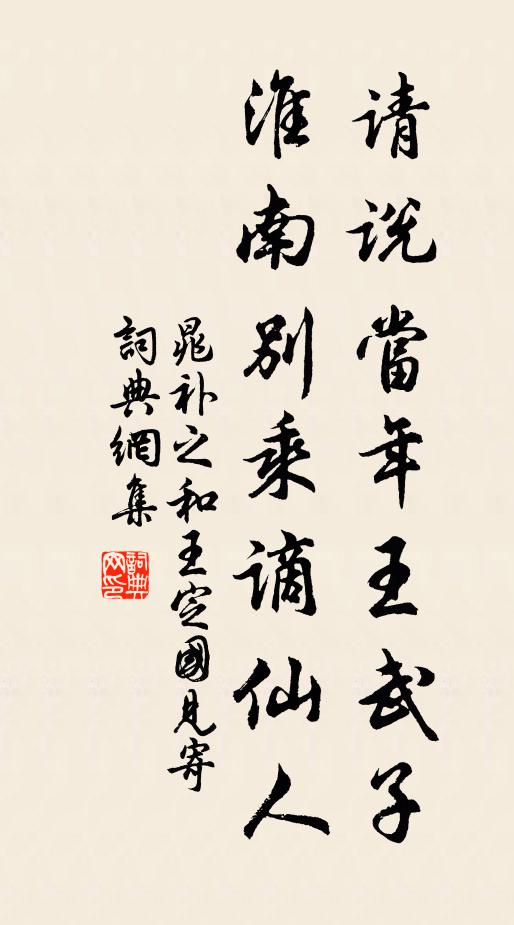 请说當年王武子
淮南别乘谪仙人
晁补之和王定國見寄
詞典網集
詞典網印